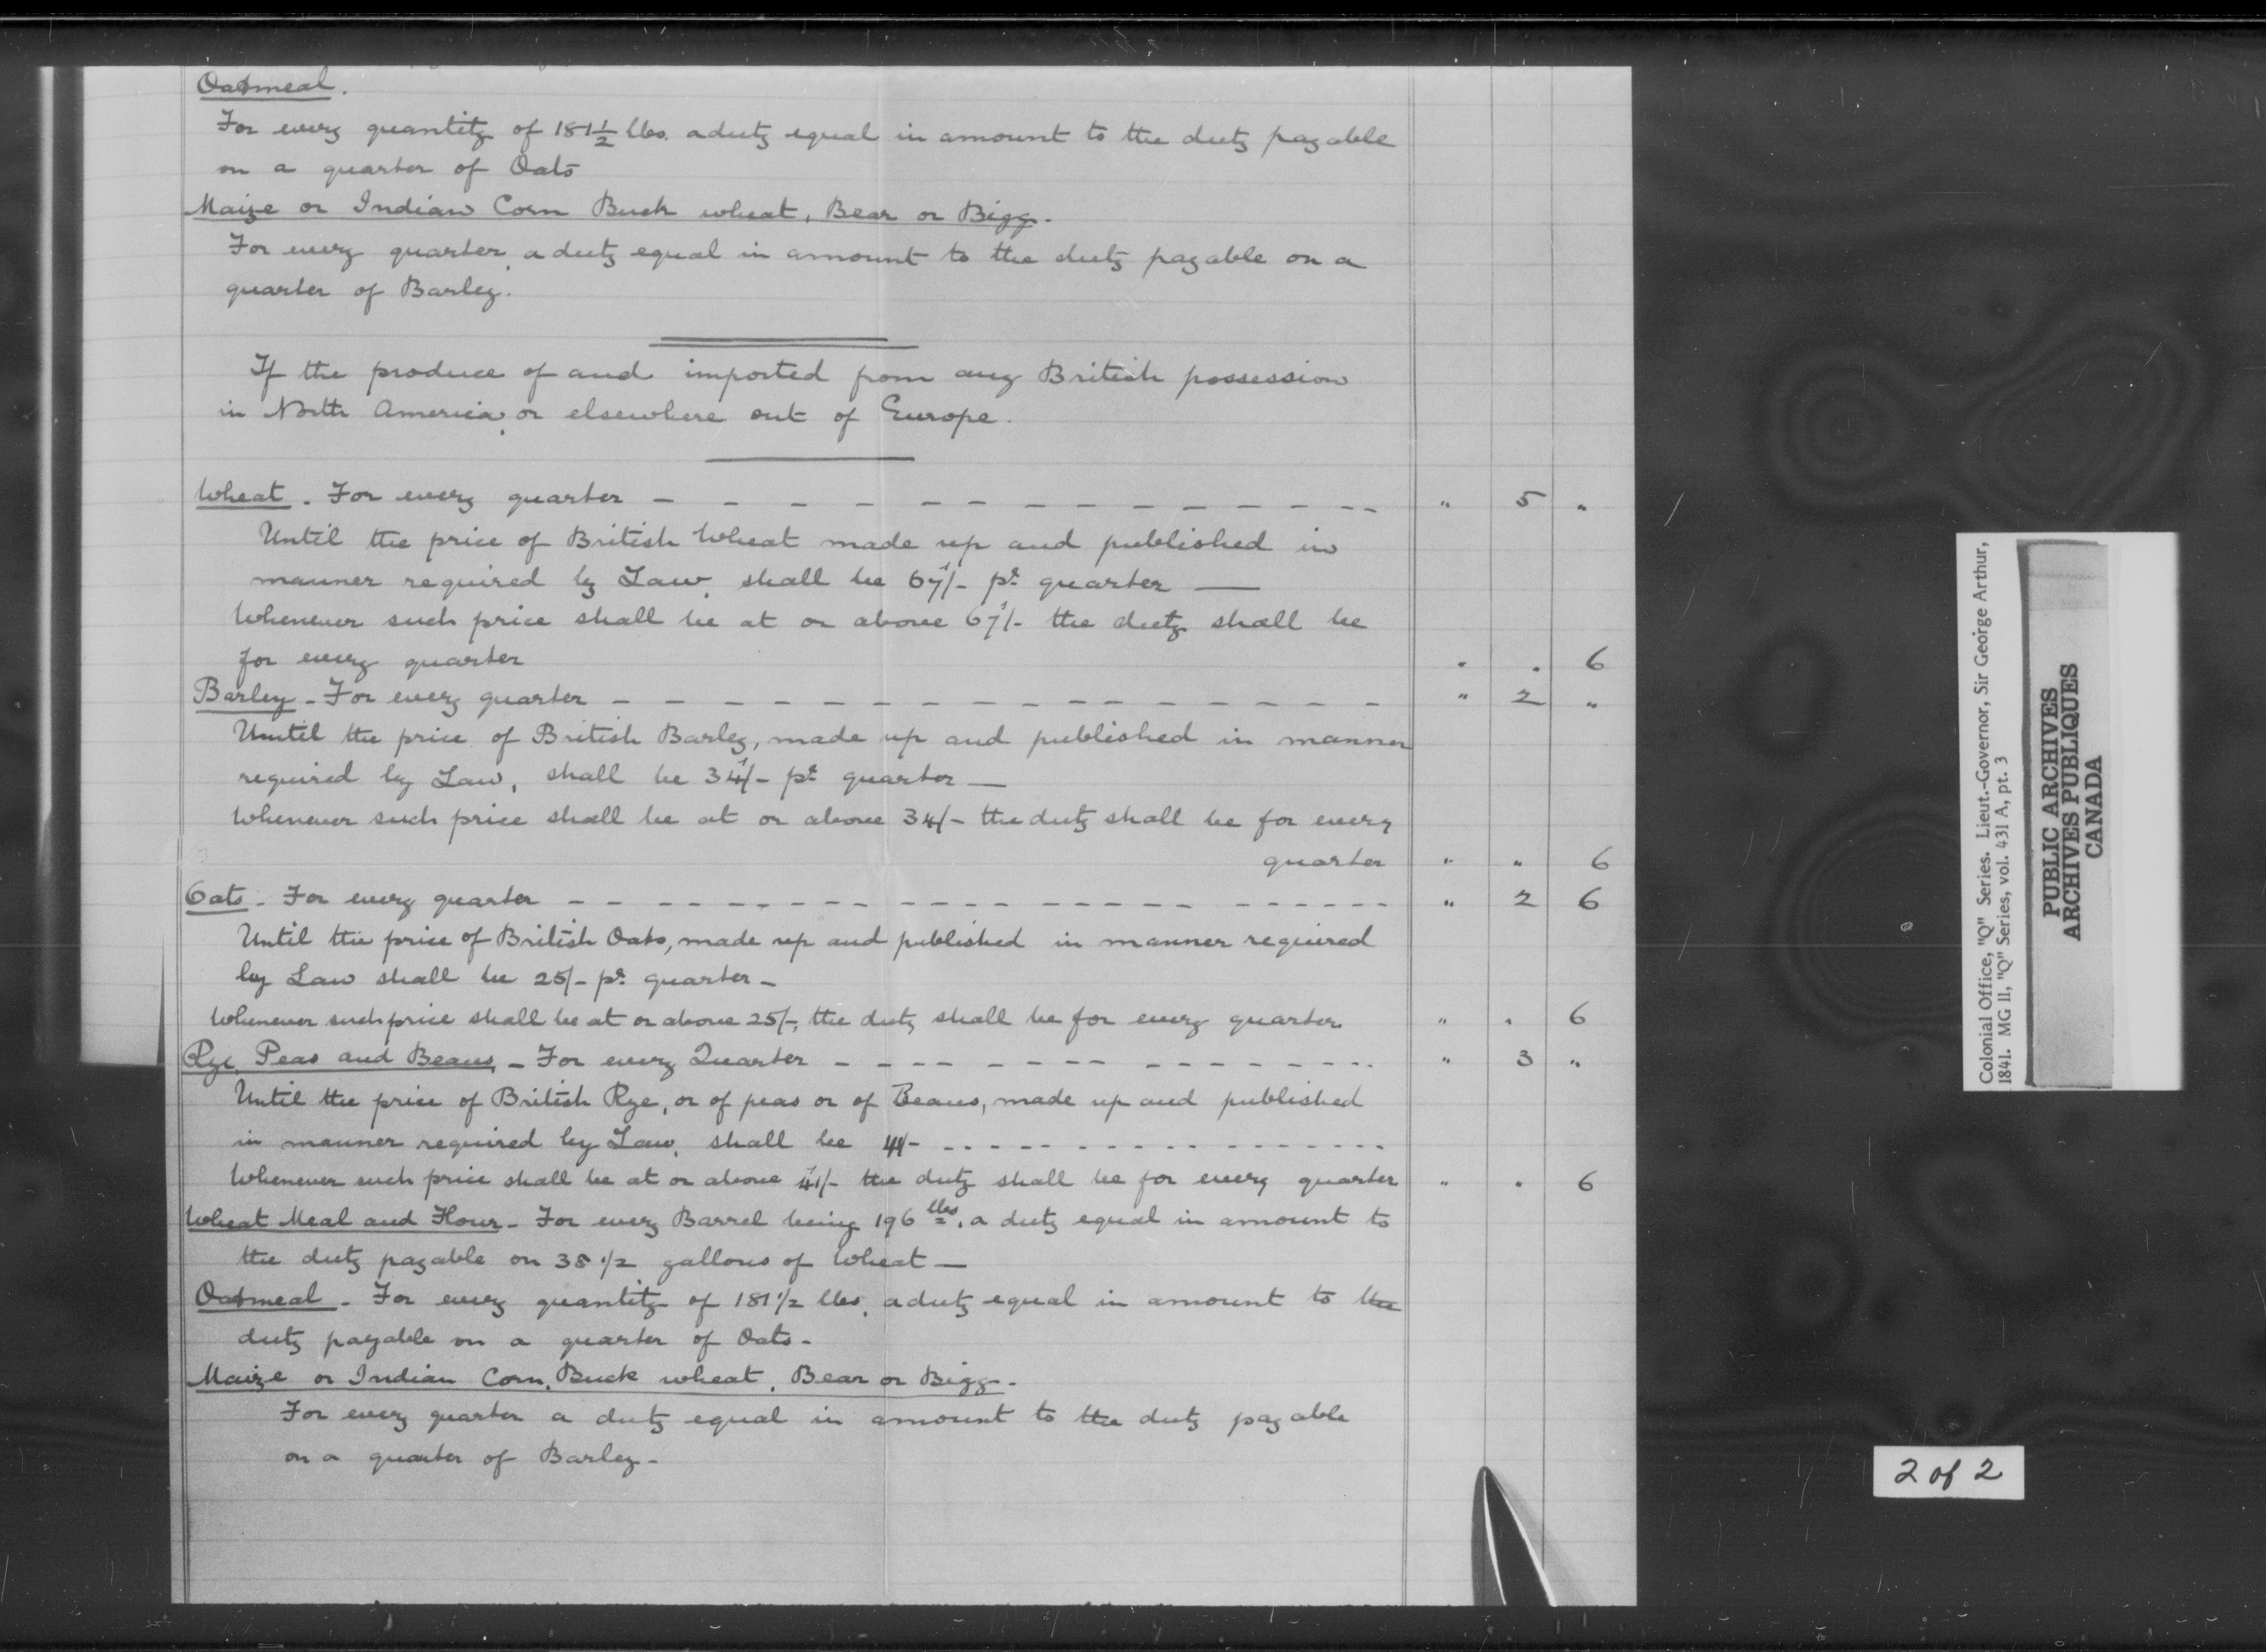 Oatmeal.
For every quantity of 181 1/2 lbs. a duty equal in amount to the duty payable
on a quarter of Oats
Maize or Indian Corn Buck wheat, Bear or Bigg.
For every quarter, a duty equal in amount to the duty payable on a
quarter of Barley.
If the produce of and imported from any British possession
in North America, or elsewhere out of Europe.
Wheat. For every quarter - - - - - - - - - - - - - - - " 5 "
Until the price of British Wheat made up and published in
manner required by Law, shall be 67/- pr quarter —
Whenever such price shall be at or above 67/- the duty shall be
for every quarter . . 6
Barley - For every quarter - - - - - - - - - - - - - - - - " 2 "
Until the price of British Barley, made up and published in manner
required by Law, shall be 34/- pr quarter —
Whenever such price shall be at or above 34/- the duty shall be for every
quarter " " 6
Oats - For every quarter - - - - - - - - - - - - - - - - - - " 2 6
Until the price of British Oats, made up and published in manner required
by Law shall be 25/- pr quarter -
Whenever such price shall be at or above 25/-, the duty shall be for every quarter " . 6
Rye, Peas and Beans, - For every Quarter - - - - - - - - - - - - - " 3 "
Until the price of British Rye, or of peas or of Beans, made up and published
in manner required by Law, shall be 41/- - - - - - - - - - - - - - -
Whenever such price shall be at or above 41/- the duty shall be for every quarter " . 6
Wheat Meal and Flour - For every Barrel being 196 lbs, a duty equal in amount to
the duty payable on 38 1/2 gallons of Wheat —
Oatmeal - For every quantity of 181 1/2 lbs, a duty equal in amount to the
duty payable on a quarter of Oats -
Maize or Indian Corn, Buck wheat, Bear or Bigg -
For every quarter a duty equal in amount to the duty payable
on a quarter of Barley -
Colonial Office, "Q" Series. Lieut.-Governor, Sir George Arthur,
1841. MG 11, "Q" Series, vol. 431 A, pt. 3
PUBLIC ARCHIVES
ARCHIVES PUBLIQUES
CANADA
2 of 2